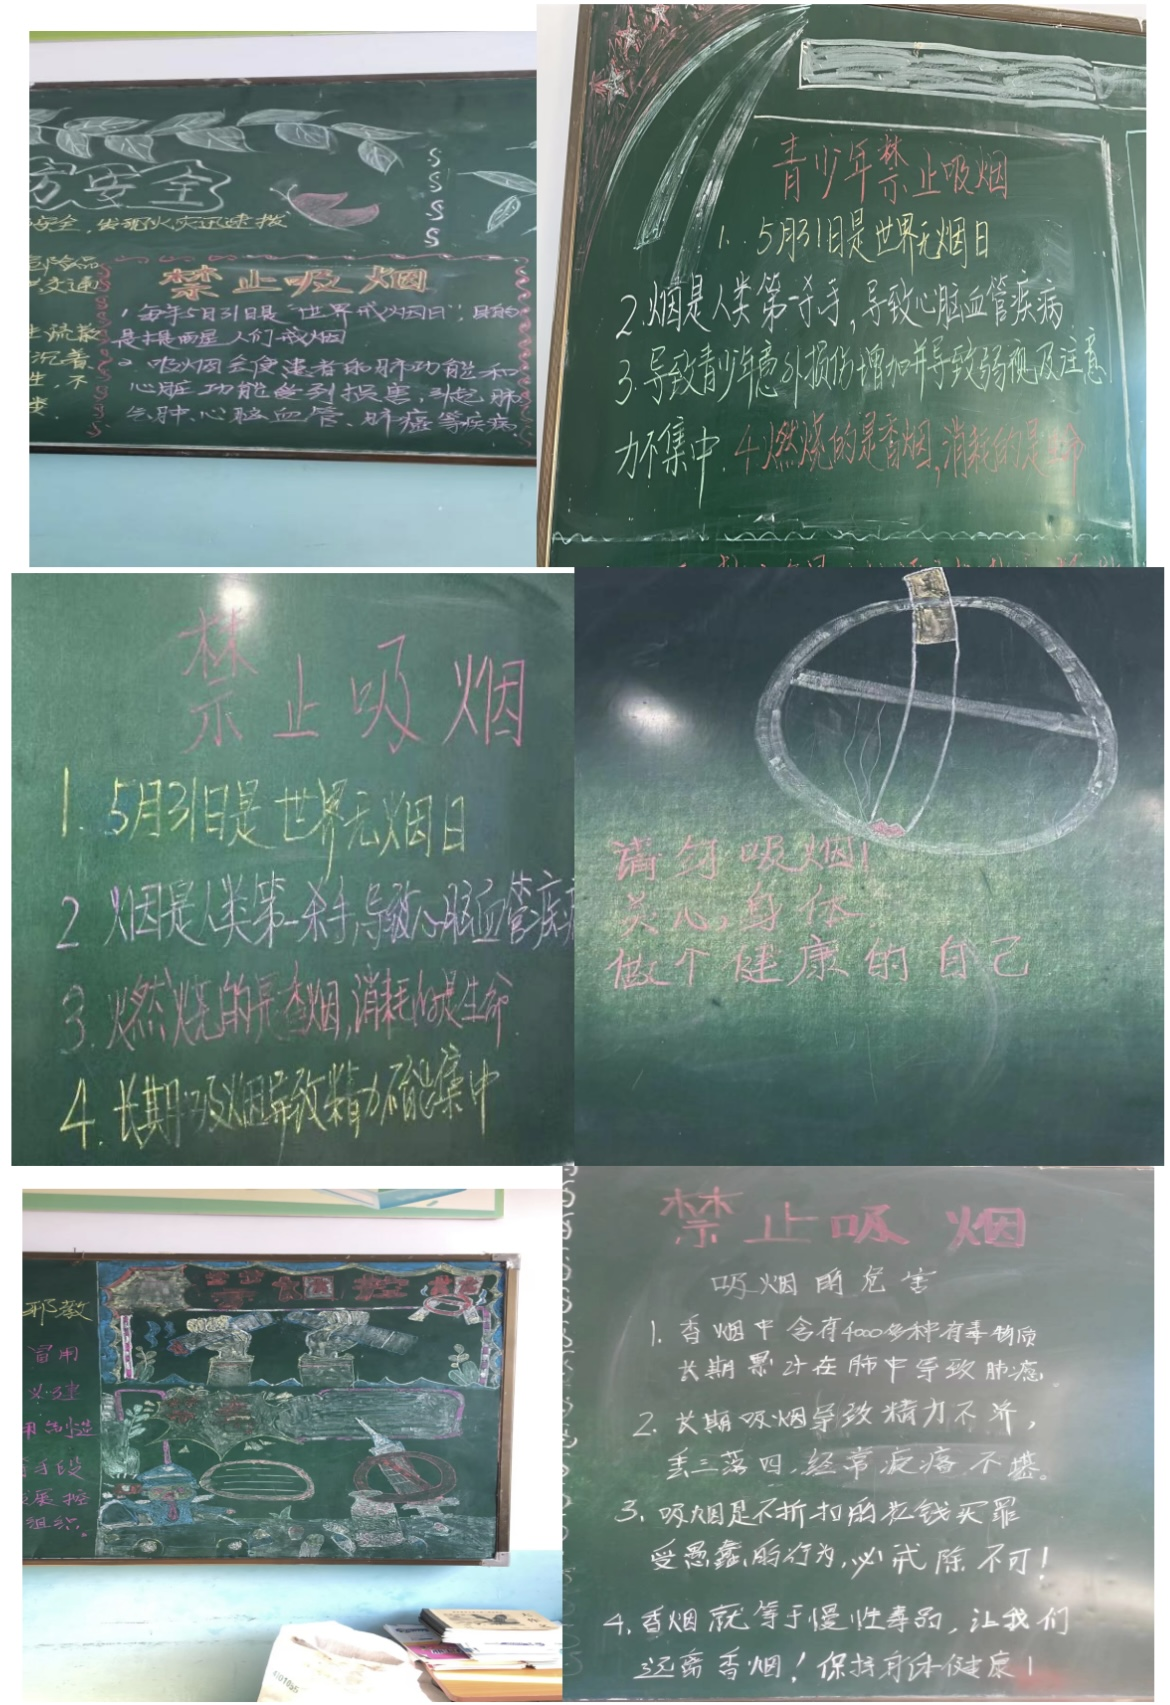 防安全
安全,发现火灾迅速拨
危险品
交通
疏散
沉着
生,不
类.
禁止吸烟
1 每年5月31日是"世界戒烟日",目的
是提醒人们戒烟
2 吸烟会使患者的肺功能和
心脏功能受到损害,引起肺
气肿、心脑血管、肺癌等疾病
青少年禁止吸烟
1. 5月31日是世界无烟日
2.烟是人类第一杀手,导致心脏血管疾病
3.导致青少年意外损伤增加并导致弱视及注意
力不集中.4.燃烧的是香烟,消耗的是生命
禁止吸烟
1. 5月31日是世界无烟日
2 烟是人类第一杀手,导致心脏血管疾病
3.燃烧的是香烟,消耗的是生命
4.长期吸烟导致精力不能集中
请勿吸烟!
关心,身体
做个健康的自己
邪教
冒用
手段
发展控
组织。
禁止吸烟
吸烟的危害
1. 香烟中含有4000多种有毒物质
长期累计在肺中导致肺癌。
2. 长期吸烟导致精力不济,
丢三落四.经常疲痛不堪。
3. 吸烟是不折扣的花钱买罪
受愚蠢的行为,必戒除不可!
4.香烟就等于慢性毒品,让我们
远离香烟!保持身体健康!